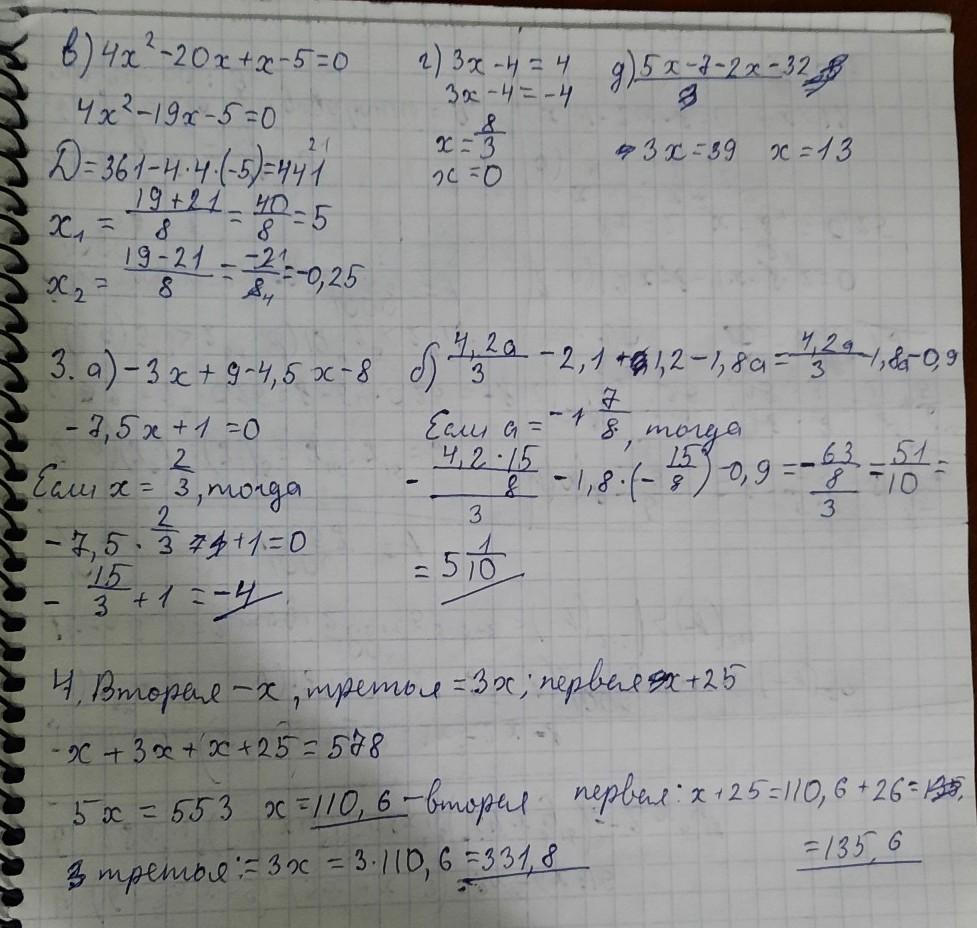 в) 4x² - 20x + x - 5 = 0
4x² - 19x - 5 = 0
D = 361 - 4 · 4 · (-5) = 441
21
x₁ = (19 + 21)/8 = 40/8 = 5
x₂ = (19 - 21)/8 = -21/84 = -0,25
г) 3x - 4 = 4
3x - 4 = -4
x = 8/3
x = 0
д) (5x - 7 - 2x - 32)/3
3x = 39 x = 13
3. а) -3x + 9 - 4,5x - 8
-7,5x + 1 = 0
Если x = 2/3, тогда
-7,5 · 2/3 + 1 = 0
-15/3 + 1 = -4
б) 4,2a/3 - 2,1 + 1,2 - 1,8a = 4,2a/3 - 1,8a - 0,9
Если a = -1 7/8, тогда
-(4,2 · 15/8)/3 - 1,8 · (-15/8) - 0,9 = -(63/8)/3 = 51/10 =
= 5 1/10
4. Вторая - x, третья = 3x; первая x + 25
x + 3x + x + 25 = 578
5x = 553 x = 110,6 - вторая первая: x + 25 = 110,6 + 26 =
= 135,6
третья: = 3x = 3 · 110,6 = 331,8